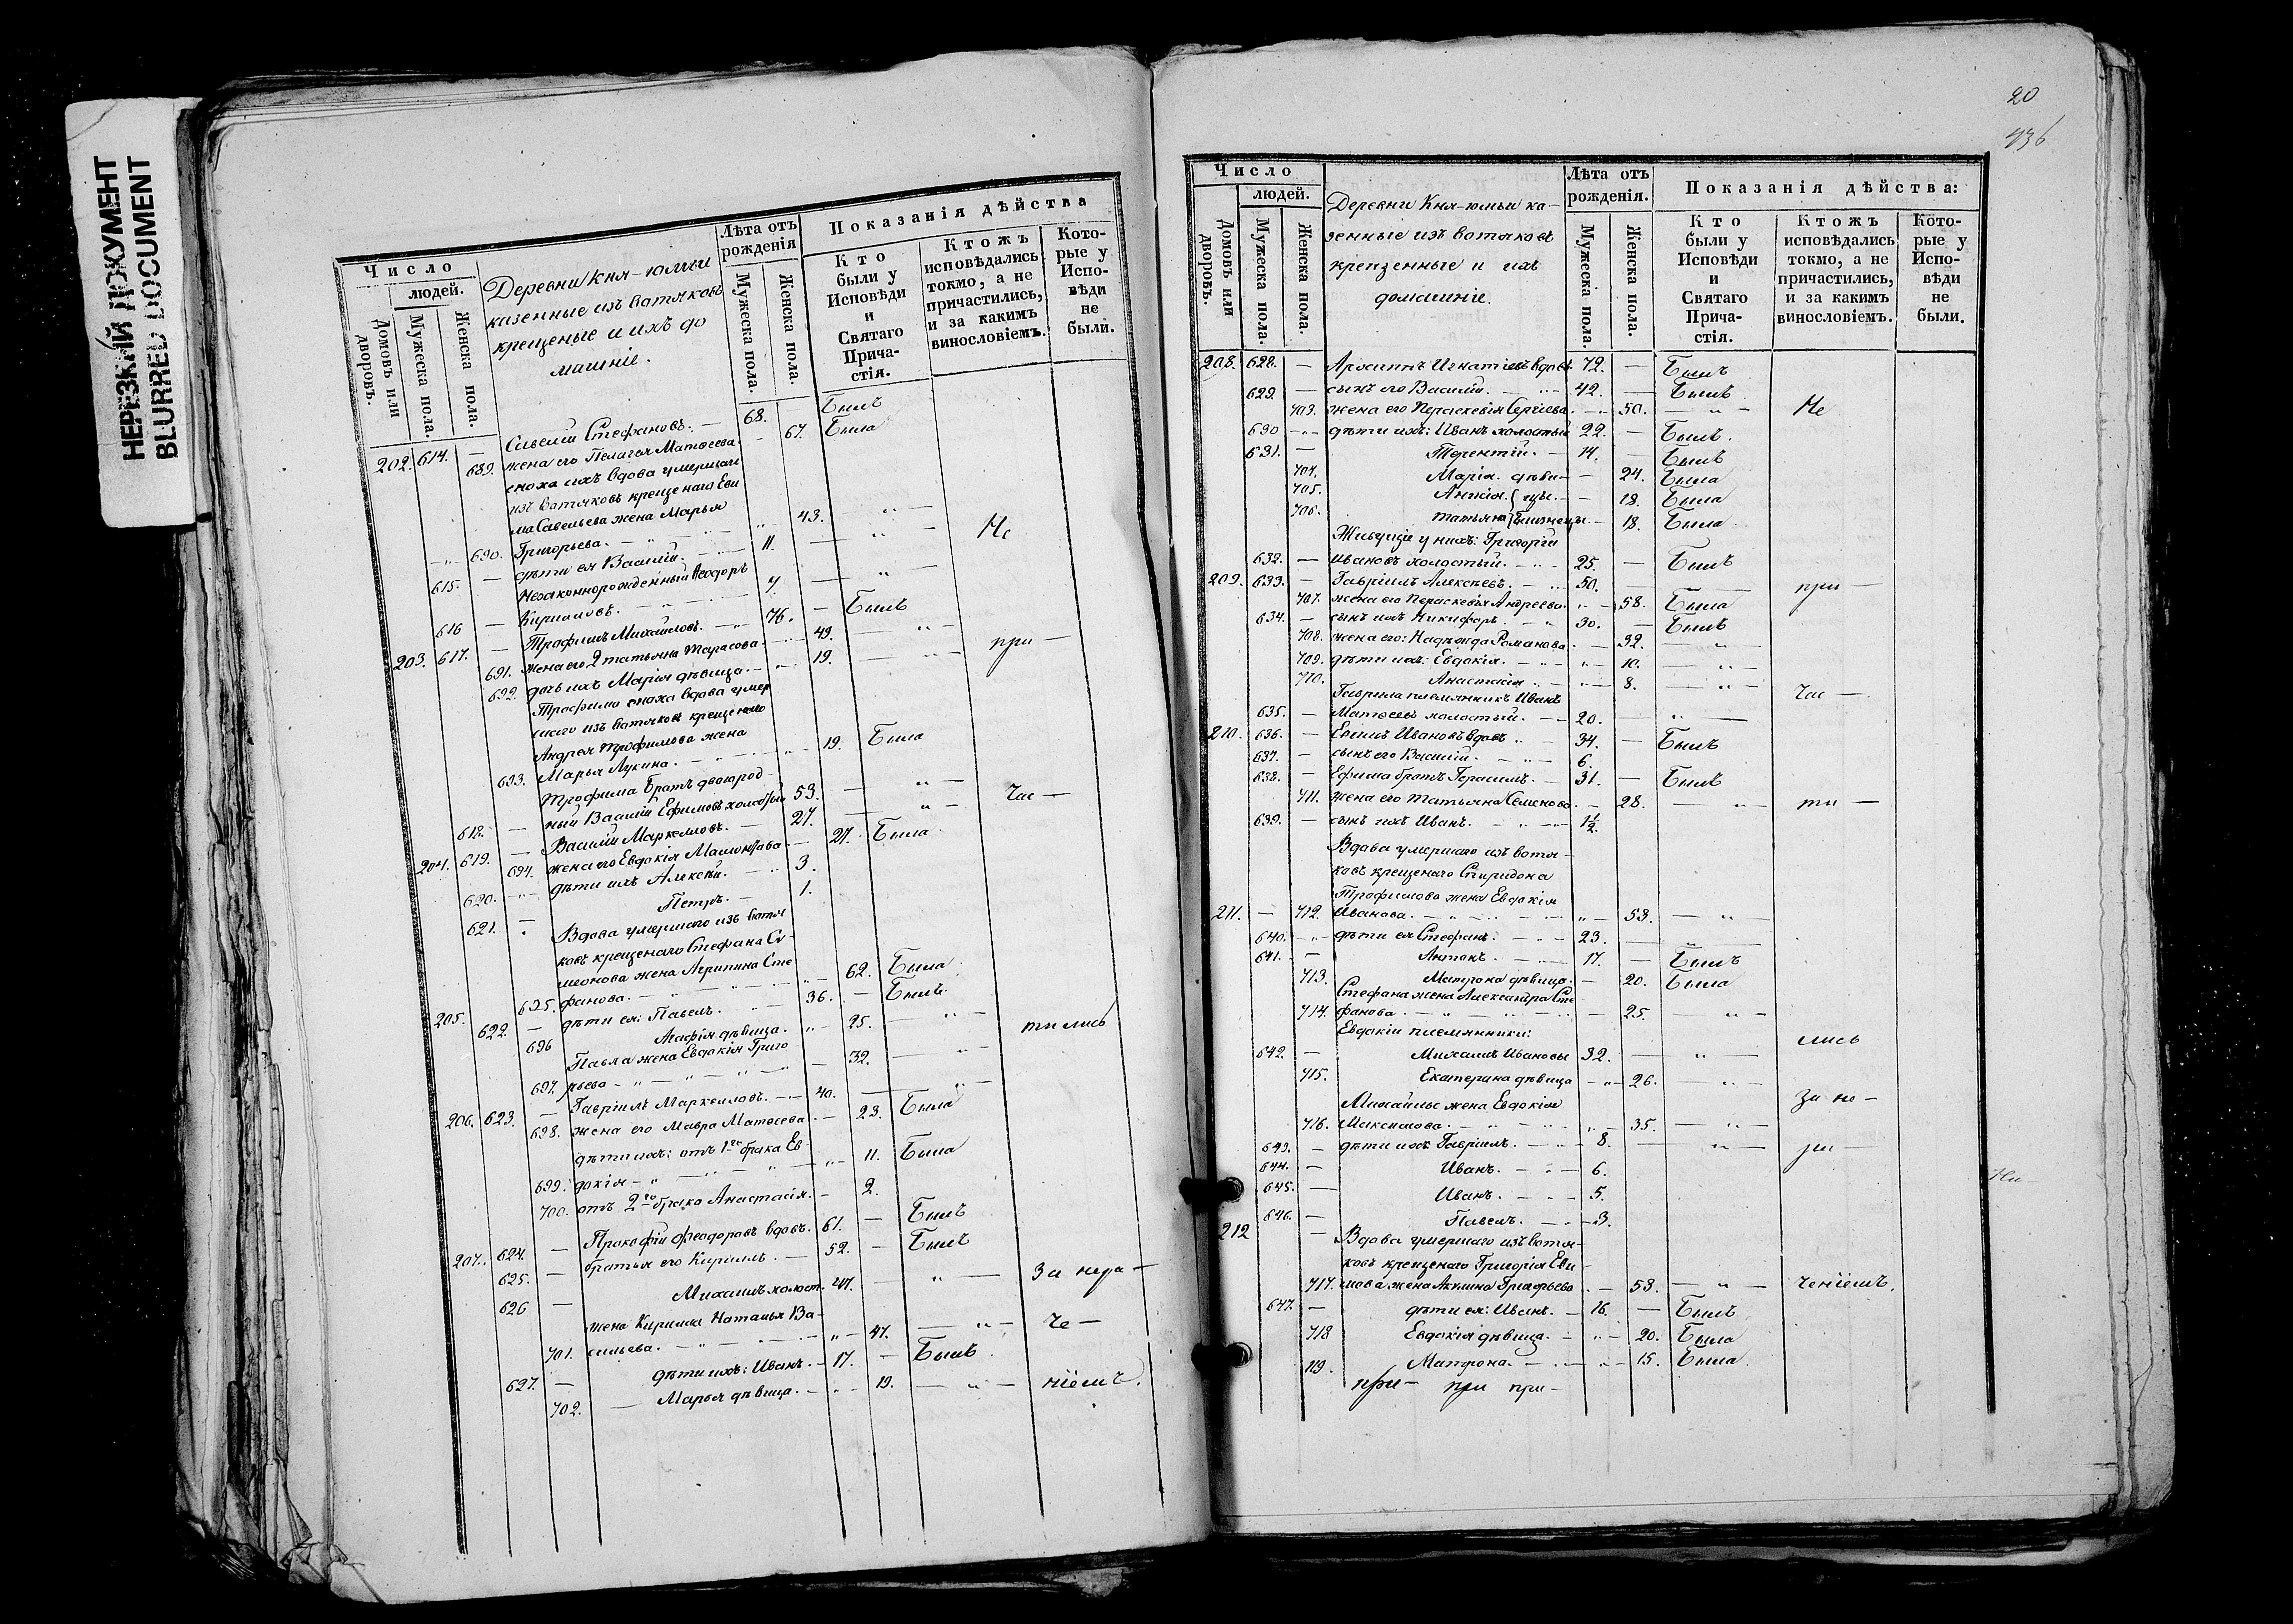 НЕРЕЗКИЙ ДОКУМЕНТ
BLURRED DOCUMENT
Число
людей.
Домовъ или дворовъ.
Мужеска пола.
Женска пола.
Деревни Кня-юмьи
казенные изъ вотяковъ
крещеные и ихъ до
машніе.
Лѣта отъ рожденія
Мужеска пола.
Женска пола.
Показанія дѣйства
Кто были у Исповѣди и Святаго Прича-стія.
Ктожъ исповѣдались токмо, а не причастились, и за какимъ винословіемъ.
Кото-рые у Испо-вѣди не были.
202. 614. — Савелій Стефановъ. — 68. Былъ
689. жена его Пелагея Матѳеева — 67. Была
сноха ихъ вдова умершаго
изъ вотяковъ крещенаго Еви
ма Савельева жена Марья
690. Григорьева. — „ — 43. — „ — Не
615. — дѣти ея Василій. — 11. — „ —
Незаконнорожденный Ѳеодоръ
616 — Кириловъ. — 7. — „ —
203. 617. — Трофимъ Михайловъ. — 76. — Былъ
691. жена его 2 Татьяна Тарасова — 49. — „ — при —
692. дочь ихъ Марія дѣвица. — 19. — „ —
Трофима сноха вдова умер
шаго изъ вотяковъ крещенаго
Андрея Трофимова жена
693. Марья Лукина. — 19. Была
Трофима братъ двоюрод-
618. — ный Василій Ефимовъ холостый 53. — „ — Час —
204. 619. — Василій Маркелловъ. — 27. — „ —
694. жена его Евдокія Мамонтова — 27. Была
620. — дѣти ихъ Алексѣй. — 3.
621. — Петръ. — 1.
Вдова умершаго изъ вотя
ковъ крещенаго Стефана Си-
меонова жена Агрипина Сте
205. 695. фанова. — 62. Была
622. — дѣти ея: Павелъ. — 36. — Былъ
696 Агафія дѣвица. — 25. — „ — тились
Павла жена Евдокія Григо
697. рьева — „ — 32. — „ —
206. 623. — Гавріилъ Маркелловъ. — 40. — „ —
698. жена его Мавра Матѳеева — 23. Была
дѣти ихъ: отъ 1го брака Ев
699. докія — „ — 11. Была
700. отъ 2го брака Анастасія. — 2.
207. 624. — Прокофій Ѳеодоровъ вдовъ. 61. — Былъ
625. — братья его Кириллъ. — 52. — Былъ
626 — Михаилъ холост. 47. — „ — За нера —
жена Кирилла Наталья Ва-
701. сильева. — „ — 47. — „ — че —
627. — дѣти ихъ: Иванъ. — 17. — Былъ
702. — Марья дѣвица. — 19. — „ — ніемъ.
20
436
Число
людей.
Домовъ или дворовъ.
Мужеска пола.
Женска пола.
Деревни Кня-юмьи ка-
зенные изъ вотяковъ
крещенные и ихъ
домашніе.
Лѣта отъ рожденія.
Мужеска пола.
Женска пола.
Показанія дѣйства:
Кто были у Исповѣди и Святаго Прича-стія.
Ктожъ исповѣдались токмо, а не причастились, и за какимъ винословіемъ.
Кото-рые у Испо-вѣди не были.
208. 628. — Архиппъ Игнатіевъ вдовъ 72. — Былъ
629. — сынъ его Василій. — 42. — Былъ
703. жена его Пераскевія Сергіева — 50. — „ — Не
630 — дѣти ихъ: Иванъ холостый 22. — Былъ.
631. — Терентій. — 14. — Былъ
704. Марія. дѣви- — 24. Была
705. Анисія. { цы. — 18. Была
706. Татьяна близнецы. — 18. Была
Живущіе у нихъ: Григорій
632. — Ивановъ холостый. — 25. — Былъ
209. 633. — Гавріилъ Алексѣевъ. — 50. — при —
707. жена его Пераскевія Андреева — 58. Была
634. — сынъ ихъ Никифоръ. — 30. — Былъ
708. жена его: Надежда Романова — 32. — „ —
709. дѣти ихъ: Евдокія. — 10. — „ —
710. Анастасія — 8. — „ — час —
Гаврила племянникъ Иванъ
635. — Матѳеевъ холостый. — 20. — „ —
210. 636. — Евимъ Ивановъ вдовъ — 34. — Былъ
637. — сынъ его Василій. — 6.
638. — Ефима братъ Герасимъ. — 31. — Былъ
711. жена его Татьяна Семенова — 28. — „ — ти —
639. — сынъ ихъ Иванъ. — 1½.
Вдова умершаго изъ вотя-
ковъ крещенаго Спиридона
Трофимова жена Евдокія
211. — 712. Иванова. — 53. — „ —
640. — дѣти ея Стефанъ. — 23. — „ —
641. — Антонъ. — 17. — Былъ
713. Матрона дѣвица. — 20. Была
Стефана жена Александра Сте
714. фанова. — 25. — „ —
Евдокіи племянники:
лись
642. — Михаилъ Ивановъ 32. — „ —
715. Екатерина дѣвица — 26. — „ —
Михайлы жена Евдокія
за не —
716. Максимова. — 35. — „ —
643. — дѣти ихъ Гавріилъ. — 8. — „ — ра —
644. — Иванъ. — 6.
645. — Иванъ. — 5.
646. — Павелъ. — 3.
212 — Вдова умершаго изъ вотя-
ковъ крещенаго Григорія Еви-
717. мова жена Акилина Григорьева — 53. — „ — ченіемъ.
647. — дѣти ея: Иванъ. — 16. — Былъ
718 Евдокія дѣвица. — 20. Была
719. Матрона. — 15. Была
при — при при —